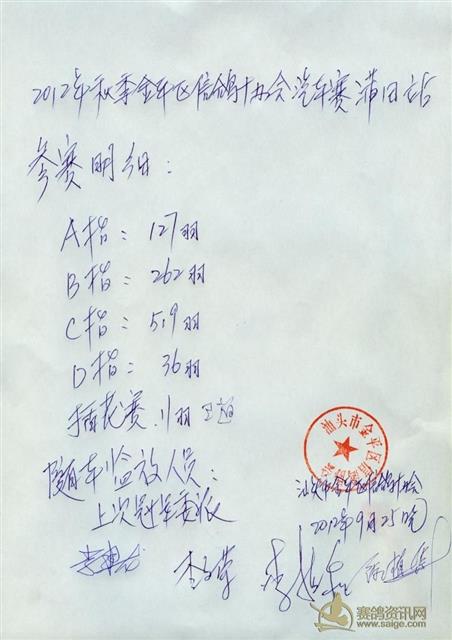 2012年秋季金平区信鸽协会汽车赛莆田站
参赛明细:
A指: 127羽
B指: 262羽
C指: 59羽
D指: 36羽
插花赛 11羽
随车监放人员:
上次冠军委派
汕头市金平区信鸽协会
汕头市金平区信鸽协会
2012年9月25日
赛鸽资讯网
www.saige.com